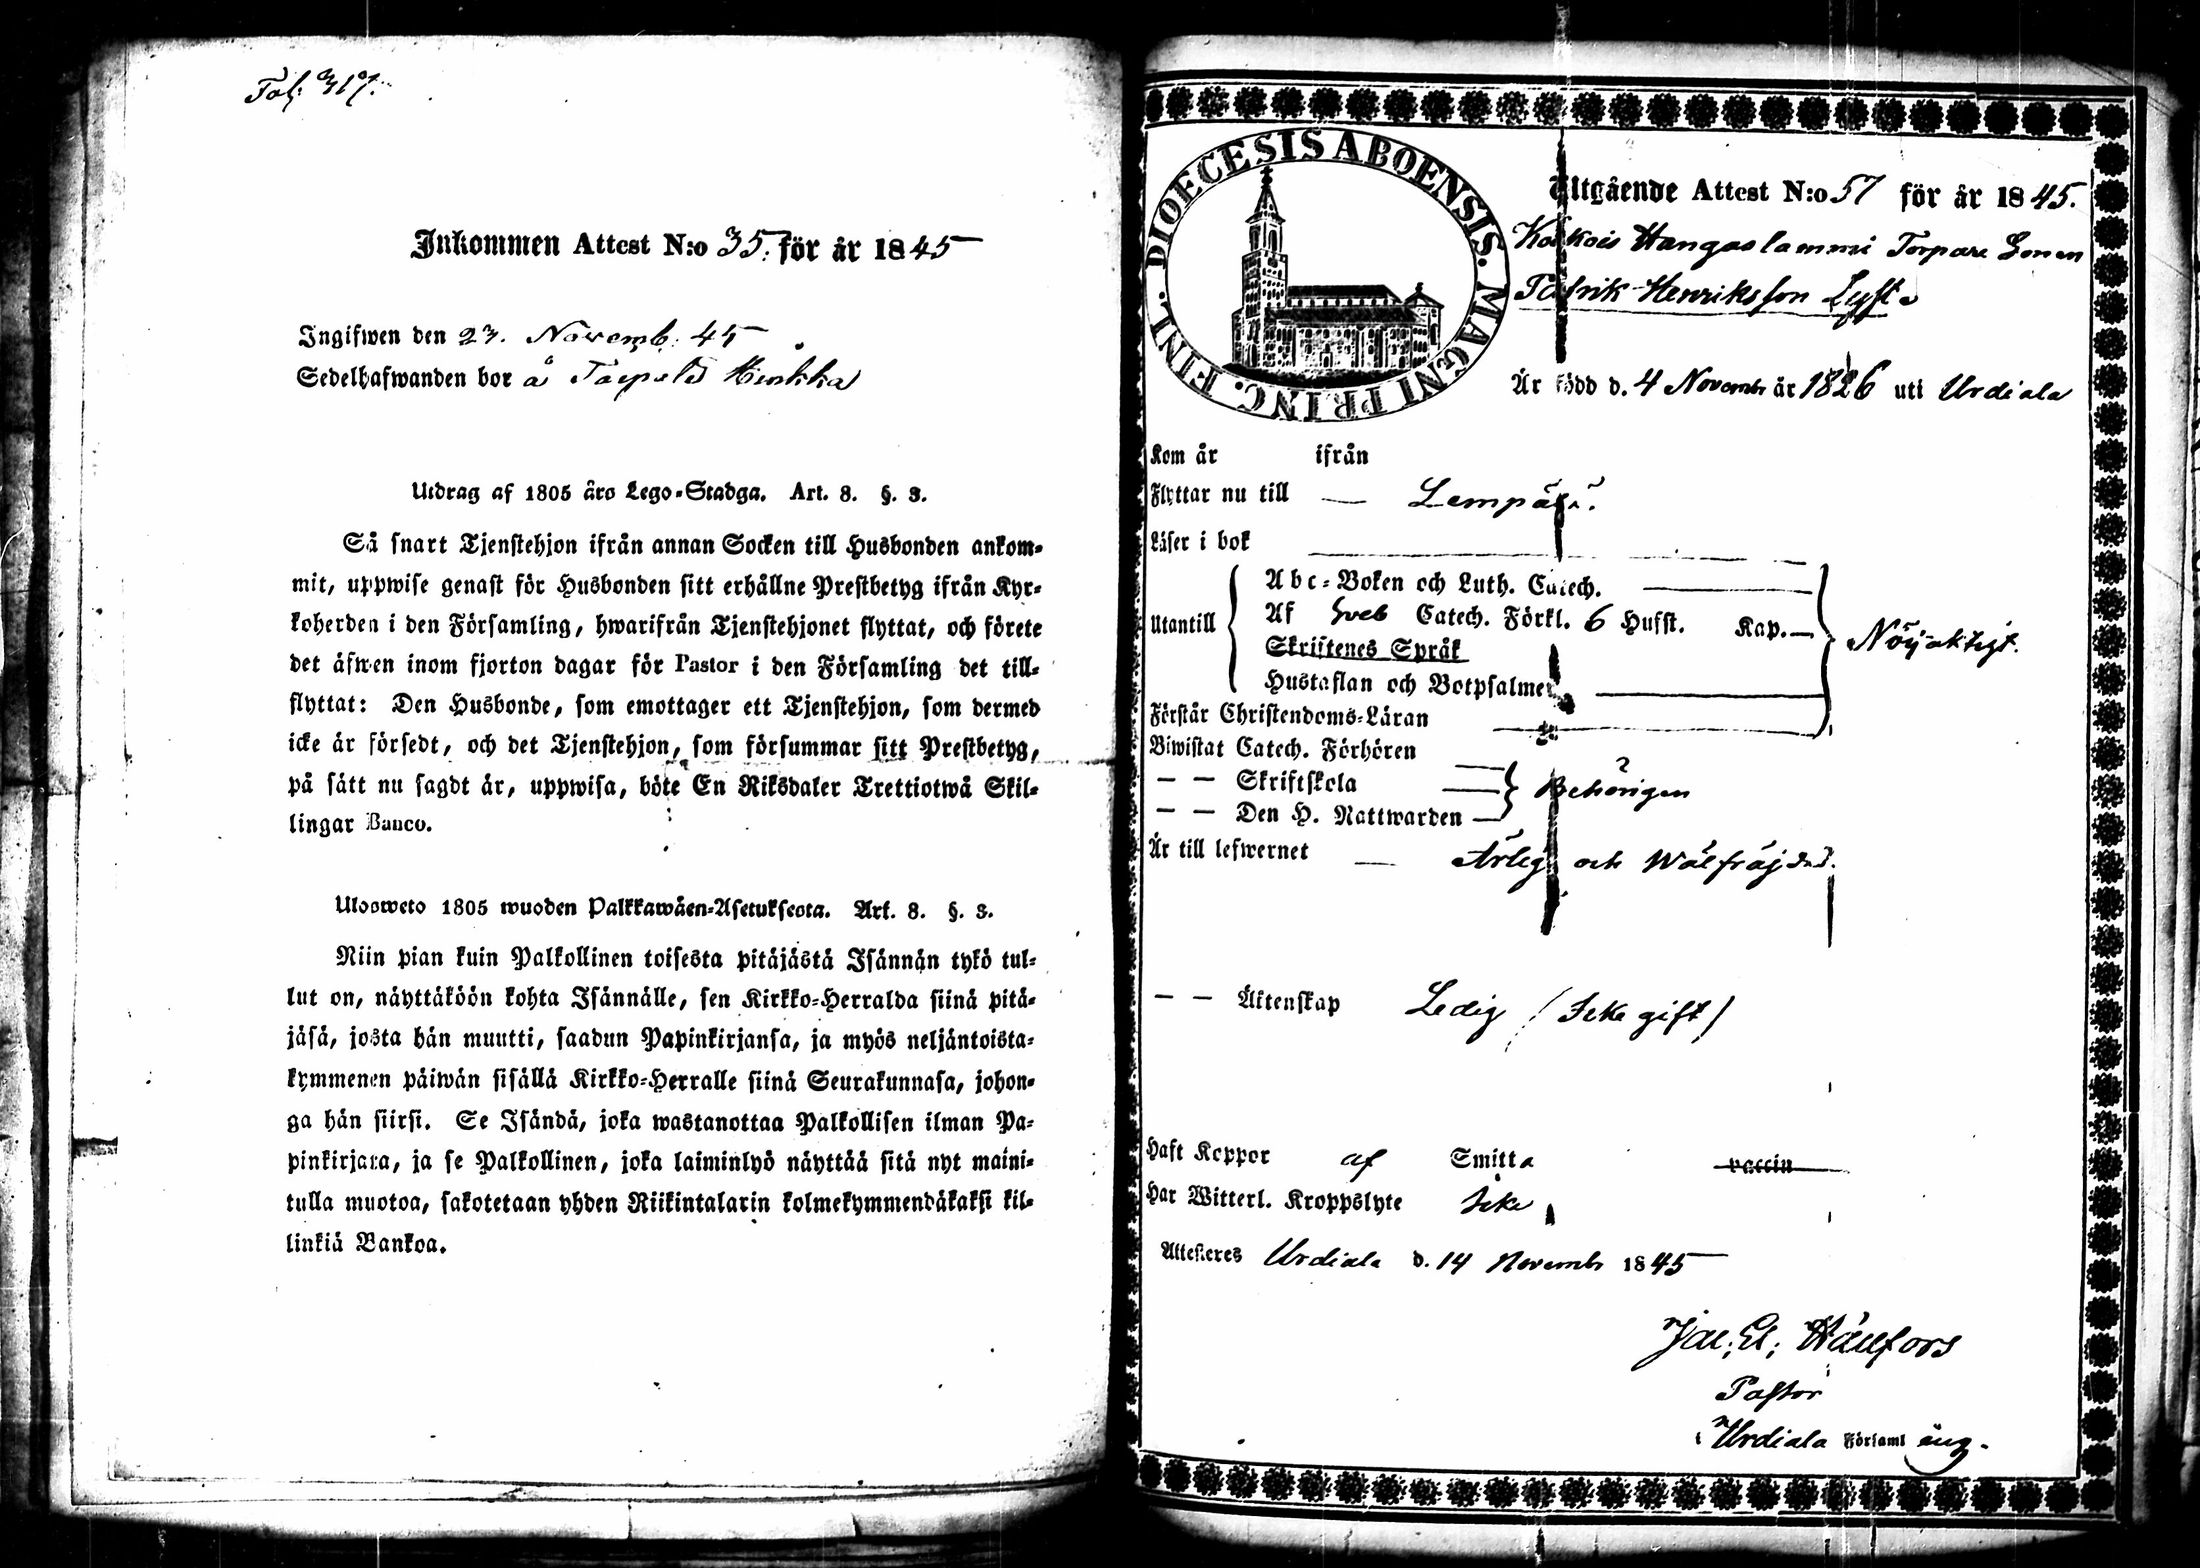 Fol. 317.
Inkommen Attest N:o 35. för år 1845
Ingifwen den 23. Novemb. 45
Sedelhafwanden bor å Torpet
Utdrag af 1805 års Lego-Stadga. Art. 8. §. 3.
Så snart Tjenstehjon ifrån annan Socken till Husbonden ankom-
mit, uppwise genast för Husbonden sitt erhållne Prestbetyg ifrån Kyr-
koherden i den Församling, hwarifrån Tjenstehjonet flyttat, och förete
det äfwen inom fjorton dagar för Pastor i den Församling det till-
flyttat: Den Husbonde, som emottager ett Tjenstehjon, som dermed
icke är försedt, och det Tjenstehjon, som försummar sitt Prestbetyg,
på sätt nu sagdt är, uppwisa, böte En Riksdaler Trettiotwå Skil-
lingar Banco.
Ulosweto 1805 wuoden Palkkawäen-Asetuksesta. Art. 8. §. 3.
Niin pian kuin Palkollinen toisesta pitäjästä Isännän tykö tul-
lut on, näyttäköön kohta Isännälle, sen Kirkko-Herralda siinä pitä-
jäsä, josta hän muutti, saadun Papinkirjansa, ja myös neljäntoista-
kymmenen päiwän sisällä Kirkko-Herralle siinä Seurakunnasa, johon-
ga hän siirsi. Se Isändä, joka wastanottaa Palkollisen ilman Pa-
pinkirjata, ja se Palkollinen, joka laiminlyö näyttää sitä nyt maini-
tulla muotoa, sakotetaan yhden Riikintalarin kolmekymmendäkaksi kil-
linkiä Bankoa.
DIOECESIS ABOENSIS. MAGNI PRINC. FINL.
Utgående Attest N:o 57 för år 1845.
Kokois Hangaslammi Torpare Sonen
Henriksson
Är född d. 4 Novembr år 1826 uti Urdiala
Kom år ifrån
Flyttar nu till — Lempälä.
Läser i bok
Utantill
Abc-Boken och Luth. Catech.
Af Sveb Catech. Förkl. 6 Hufst. Kap. —
Skriftenes Språk
Hustaflan och Botpsalmer
Nöjaktigt.
Förstår Christendoms-Läran
Biwistat Catech. Förhören
— — Skriftskola
— — Den H. Nattwarden
Behörigen
Är till lefwernet — Ärlig och Wälfräjdad.
— — Äktenskap Ledig (Icke gift)
Haft Koppor af Smitta vaccin
Har Witterl. Kroppslyte Icke
Attesteres Urdiala d. 14 Novembr 1845
Jac. El. Hällfors
Pastor
i Urdiala Församl ing.